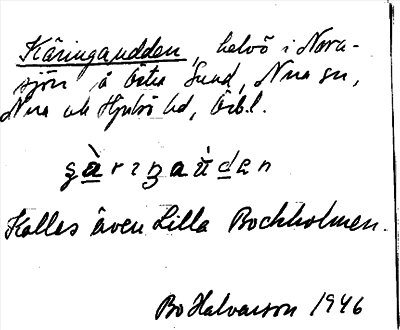 Käringaudden, halvö i Nora-
sjön å Östra Sund, Nora sn,
Nora och Hjulsjö hd, Örbl.
Kallas även Lilla Bockholmen.
Bo Halvarson 1946